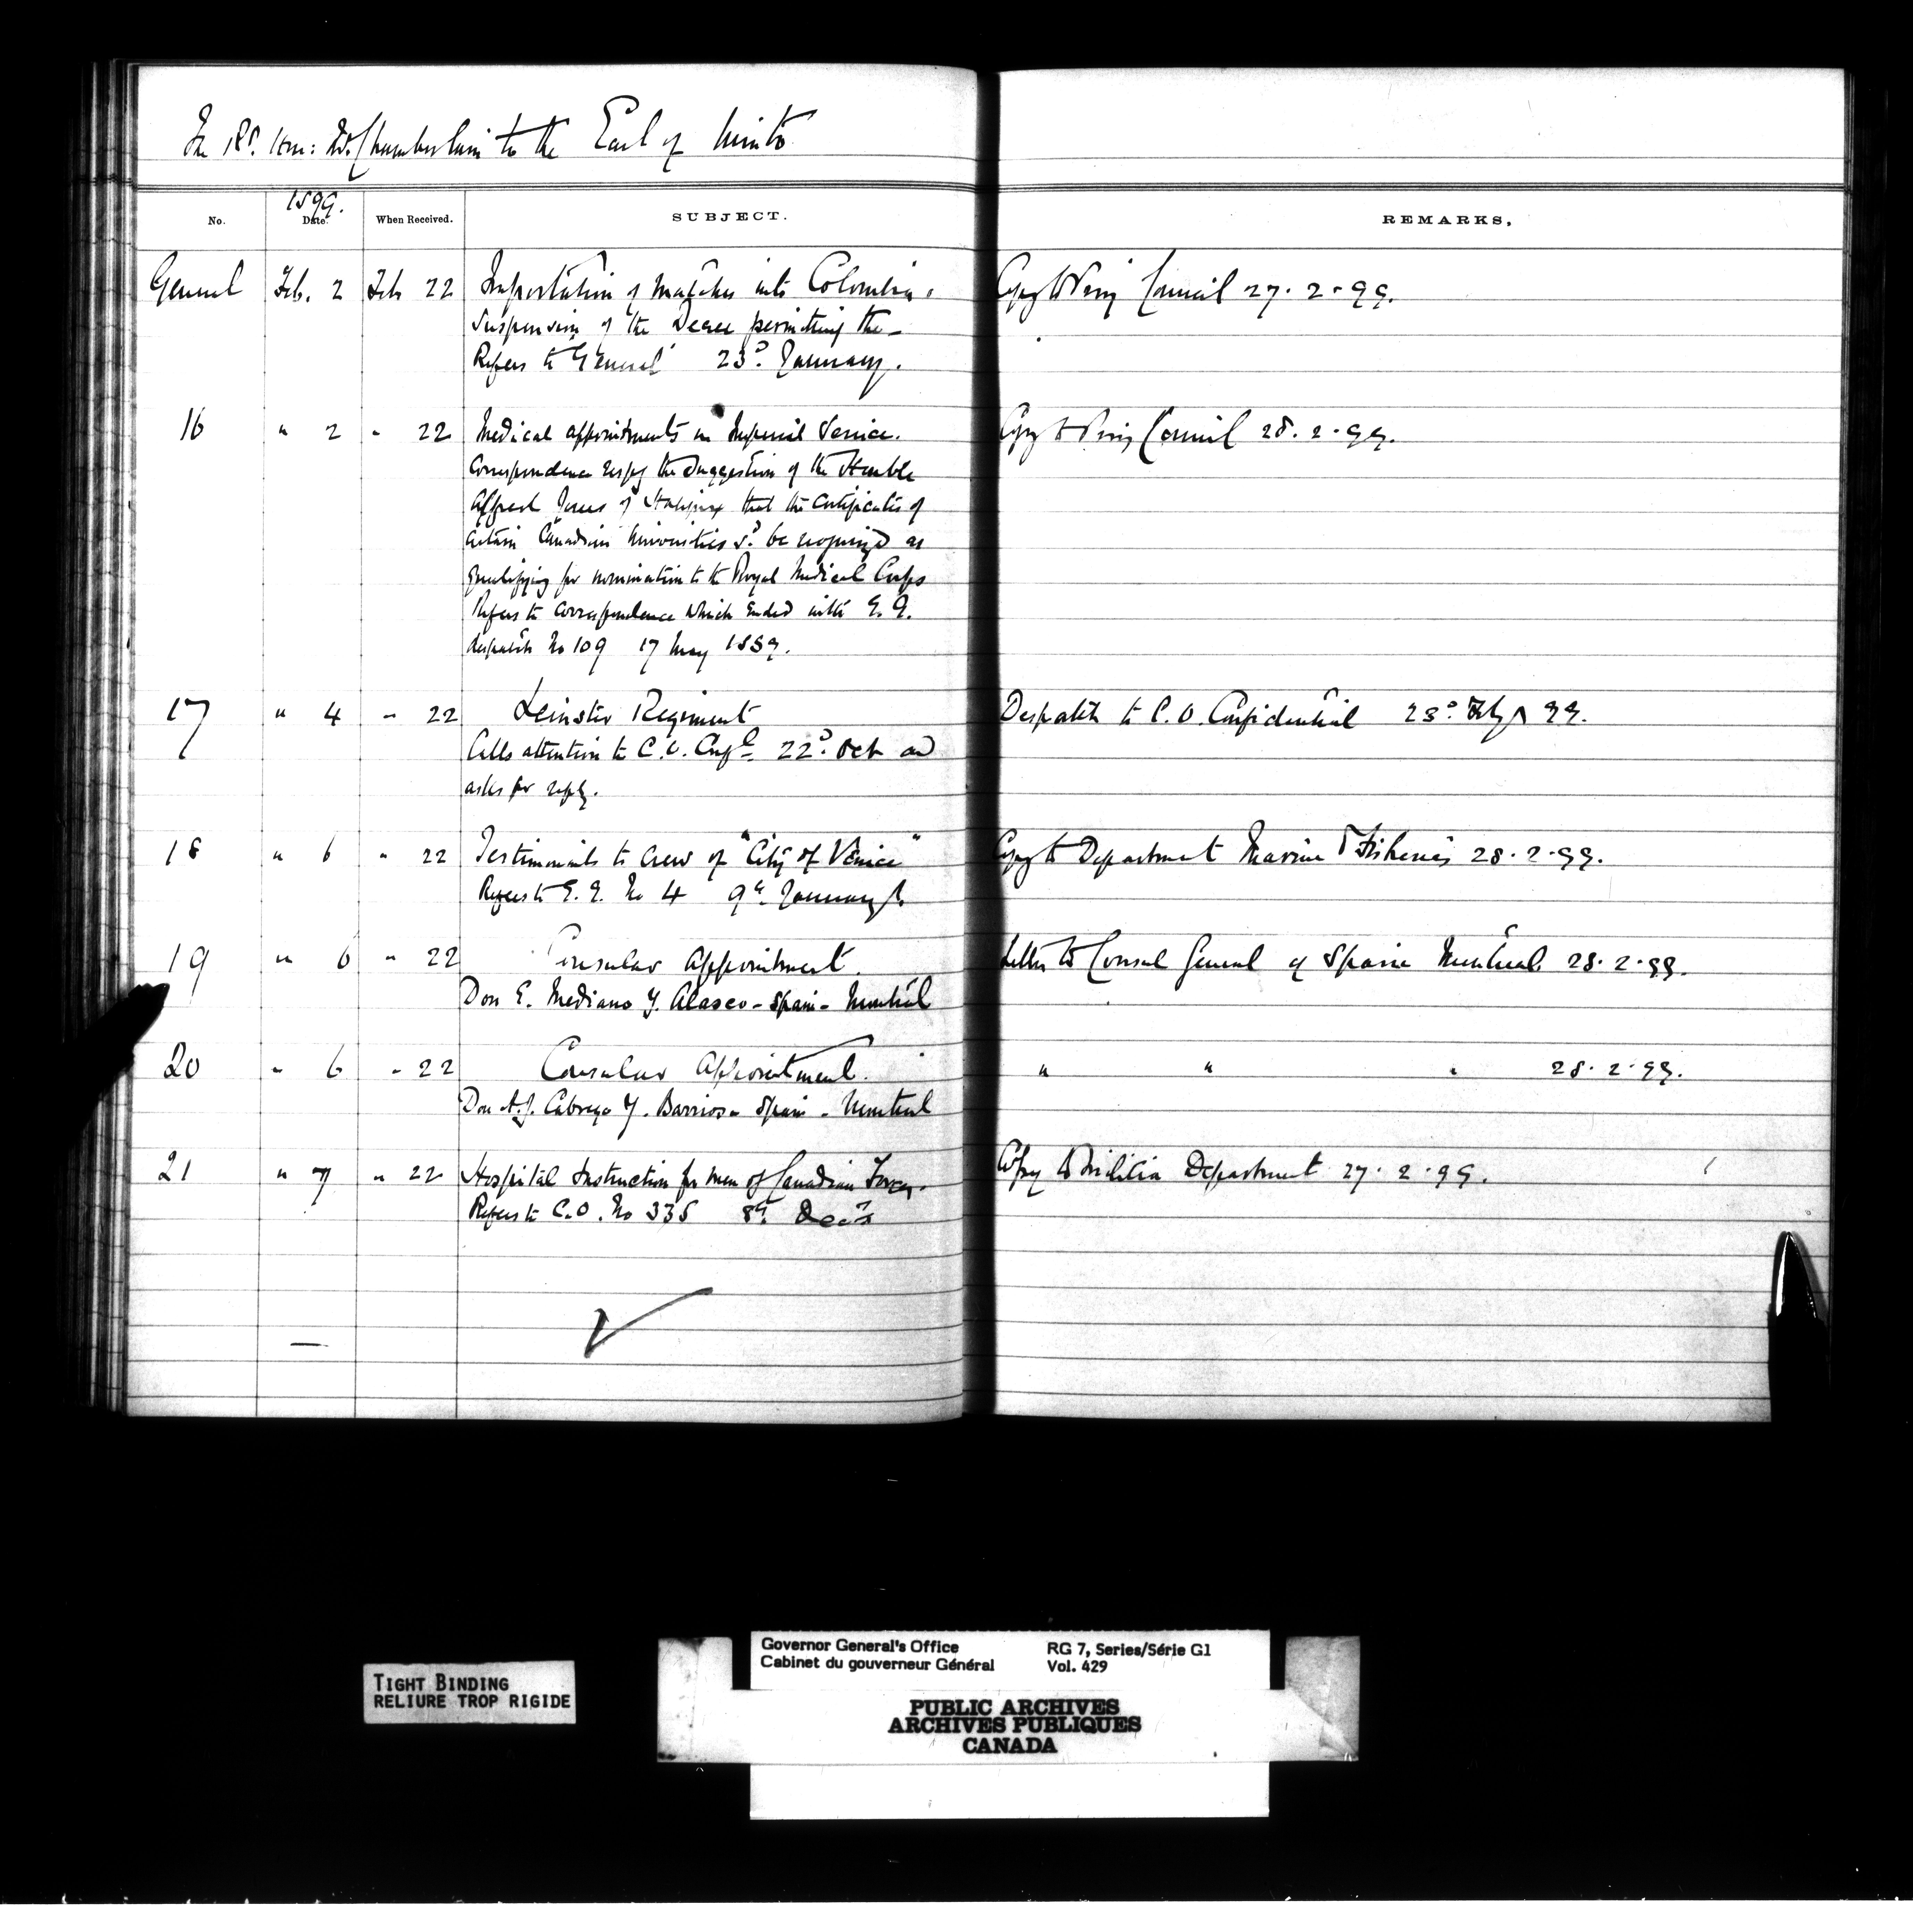 The Rt. Hon: Mr. Chamberlain to the Earl of Minto
1899.
No. Date. When Received. SUBJECT. REMARKS.
General Feb. 2 Feb 22 Importation of matches into Colombia. Copy to Privy Council 27.2.99.
Suspension of the Decree permitting the -
Refers to "General" 23d. January.
16 " 2 " 22 Medical appointments in Imperial Service. Copy to Privy Council 28.2.99.
Correspondence respg the suggestion of the Honble
Alfred Jones of Halifax that the certificates of
certain Canadian Universities sd. be recognized as
qualifying for nomination to the Royal Medical Corps
Refers to correspondence which ended with G.G.
despatch No 109 17 May 1889.
17 " 4 " 22 Leinster Regiment Despatch to C.O. Confidential 23d. Feby 99.
Calls attention to C.O. Confl. 22d. Oct and
asks for reply.
18 " 6 " 22 Testimonials to crew of "City of Venice" Copy to Department Marine & Fisheries 28.2.99.
Refers to G.G. No 4 9th. January
19 " 6 " 22 Consular Appointment. Letter to Consul General of Spain Montreal 28.2.99.
Don E. Mediano Y. Alasco - Spain - Montreal
20 " 6 " 22 Consular Appointment. " " " 28.2.99.
Don A.J. Cabrejo Y. Barrios - Spain - Montreal
21 " 7 " 22 Hospital Instruction for men of Canadian Forces. Copy to Militia Department 27.2.99.
Refers to C.O. No 335 8th. Decr
TIGHT BINDING
RELIURE TROP RIGIDE
Governor General's Office RG 7, Series/Série G1
Cabinet du gouverneur Général Vol. 429
PUBLIC ARCHIVES
ARCHIVES PUBLIQUES
CANADA